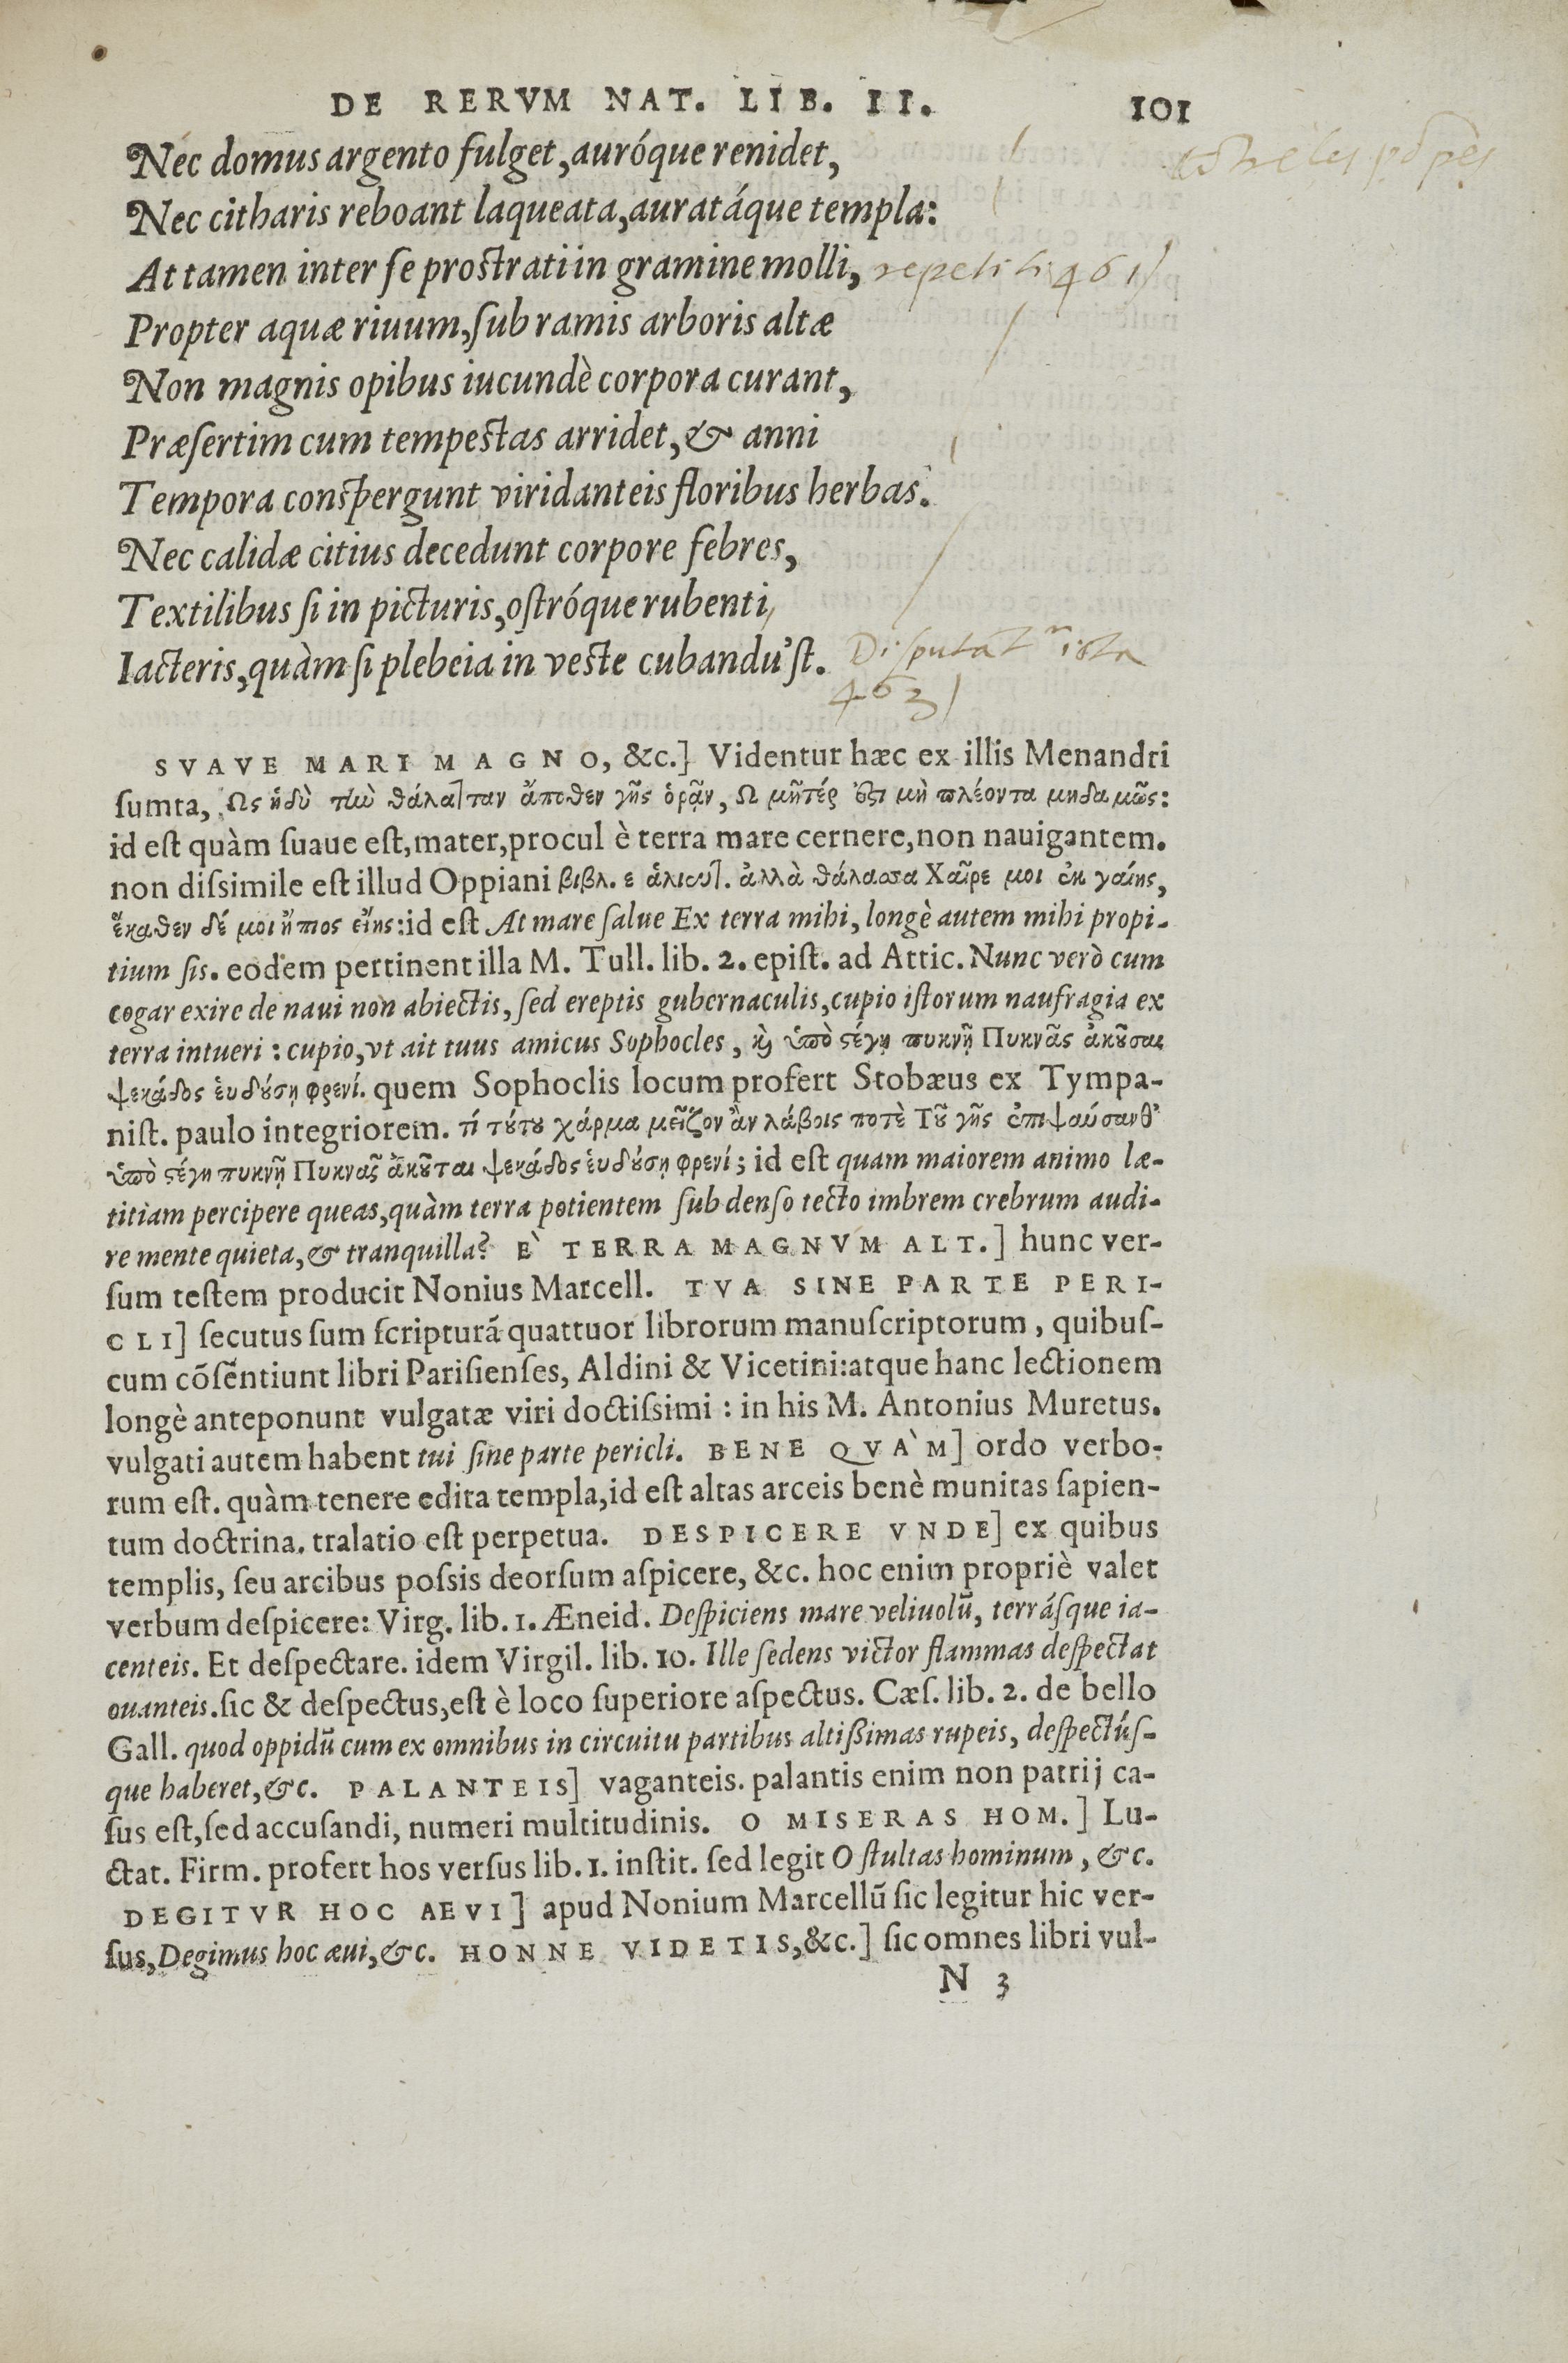 DE RERVM NAT. LIB. II. 101
Nec domus argento fulget, auróque renidet,
Nec citharis reboant laqueata, auratáque templa:
At tamen inter se prostrati in gramine molli, repetit 461
Propter aquæ riuum, sub ramis arboris altæ
Non magnis opibus iucundè corpora curant,
Præsertim cum tempestas arridet, & anni
Tempora conspergunt viridanteis floribus herbas.
Nec calidæ citius decedunt corpore febres,
Textilibus si in picturis, ostróque rubenti
Iacteris, quàm si plebeia in veste cubandu'st. Disputat ista
463
SVAVE MARI MAGNO, &c.] Videntur hæc ex illis Menandri
sumta, Ως ἡδὺ τὴν θάλατταν ἄποθεν γῆς ὁρᾷν, Ω μῆτέρ ἐστι μὴ πλέοντα μηδαμῶς:
id est quàm suaue est, mater, procul è terra mare cernere, non nauigantem.
non dissimile est illud Oppiani βιβλ. ε ἁλιευτ. ἀλλὰ θάλασσα Χαῖρε μοι ἐκ γαίης,
ἕκαθεν δέ μοι ἤπιος εἴης: id est At mare salue Ex terra mihi, longè autem mihi propi-
tium sis. eodem pertinent illa M. Tull. lib. 2. epist. ad Attic. Nunc verò cum
cogar exire de naui non abiectis, sed ereptis gubernaculis, cupio istorum naufragia ex
terra intueri: cupio, vt ait tuus amicus Sophocles, καὶ ὑπὸ στέγῃ πυκνῇ Πυκνᾶς ἀκοῦσαι
ψεκάδος εὑδούσῃ φρενί. quem Sophoclis locum profert Stobæus ex Tympa-
nist. paulo integriorem. τί τούτου χάρμα μεῖζον ἂν λάβοις ποτὲ Τοῦ γῆς ἐπιψαύσανθ'
ὑπὸ στέγῃ πυκνῇ Πυκνᾶς ἀκοῦται ψεκάδος εὑδούσῃ φρενί; id est quam maiorem animo læ-
titiam percipere queas, quàm terra potientem sub denso tecto imbrem crebrum audi-
re mente quieta, & tranquilla? E` TERRA MAGNVM ALT.] hunc ver-
sum testem producit Nonius Marcell. TVA SINE PARTE PERI-
CLI] secutus sum scripturã quattuor librorum manuscriptorum, quibus-
cum cõsẽntiunt libri Parisienses, Aldini & Vicetini: atque hanc lectionem
longè anteponunt vulgatæ viri doctissimi: in his M. Antonius Muretus.
vulgati autem habent tui sine parte pericli. BENE QVA`M] ordo verbo-
rum est. quàm tenere edita templa, id est altas arceis benè munitas sapien-
tum doctrina. tralatio est perpetua. DESPICERE VNDE] ex quibus
templis, seu arcibus possis deorsum aspicere, &c. hoc enim propriè valet
verbum despicere: Virg. lib. 1. Æneid. Despiciens mare veliuolũ, terrásque ia-
centeis. Et despectare. idem Virgil. lib. 10. Ille sedens victor flammas despectat
ouanteis. sic & despectus, est è loco superiore aspectus. Cæs. lib. 2. de bello
Gall. quod oppidũ cum ex omnibus in circuitu partibus altissimas rupeis, despectús-
que haberet, &c. PALANTEIS] vaganteis. palantis enim non patrij ca-
sus est, sed accusandi, numeri multitudinis. O MISERAS HOM.] Lu-
ctat. Firm. profert hos versus lib. 1. instit. sed legit O stultas hominum, &c.
DEGITVR HOC AEVI] apud Nonium Marcellũ sic legitur hic ver-
sus, Degimus hoc æui, &c. HONNE VIDETIS, &c.] sic omnes libri vul-
N 3